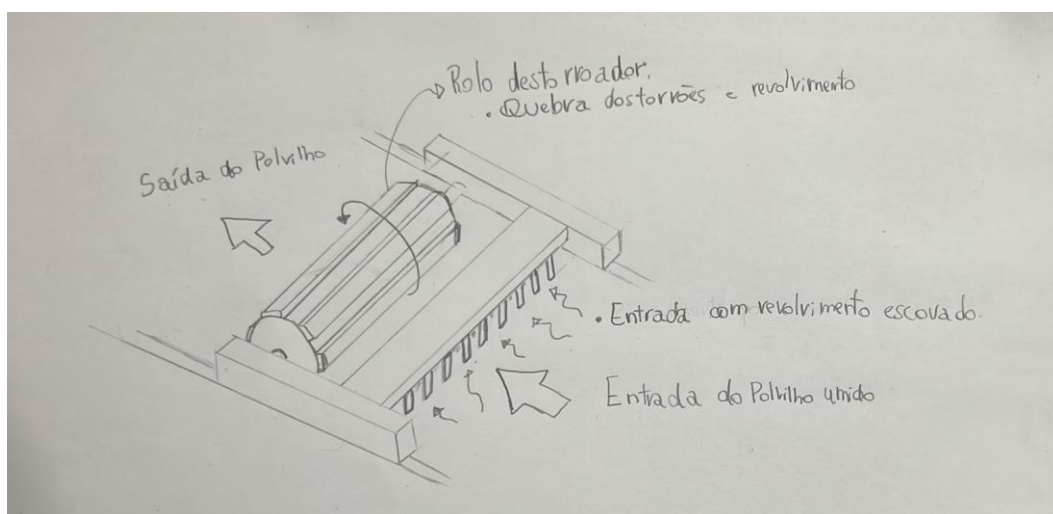 Rolo destorroador.
• Quebra dos torrões e revolvimento
Saída do Polvilho
• Entrada com revolvimento escovado.
Entrada do Polvilho umido